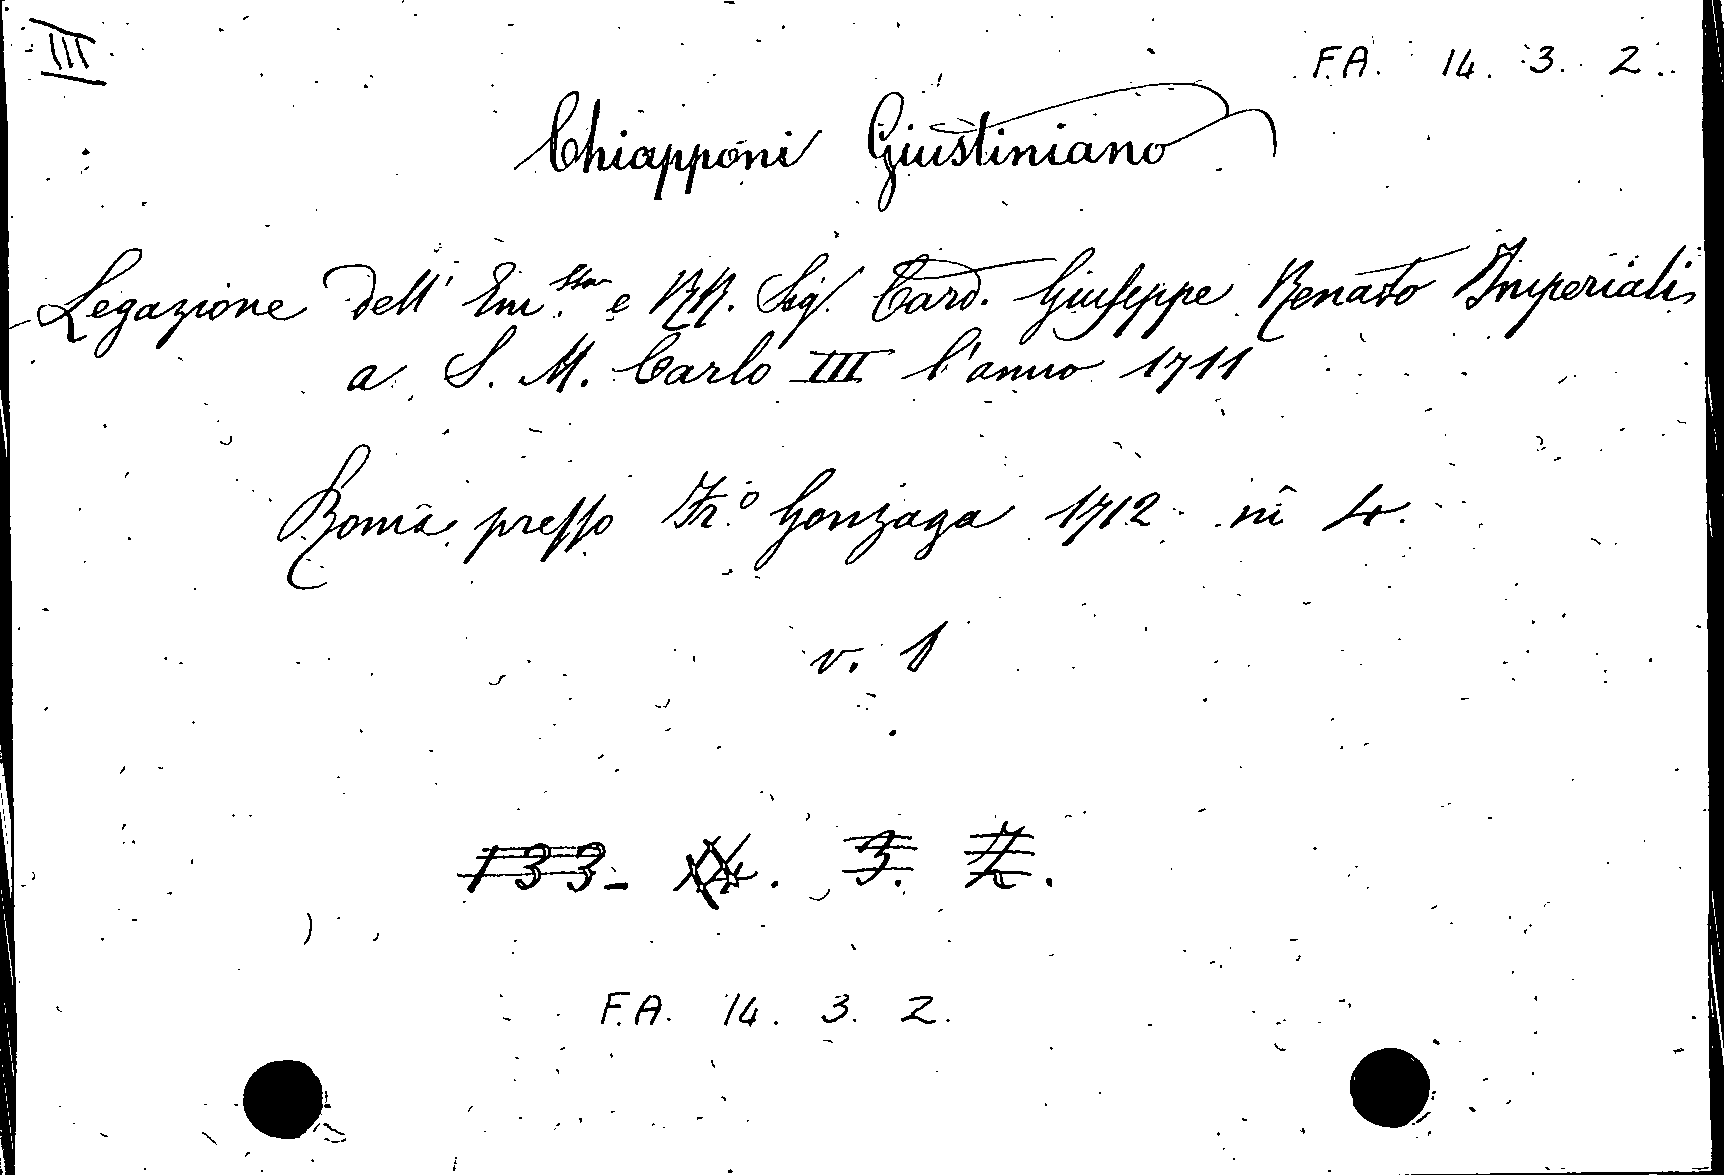 III
F.A. 14. 3. 2.
Chiapponi Giustiniano
Legazione dell' Em.ᵐᵒ e RR. Sig. Card. Giuseppe Renato Imperiali
a S. M. Carlo III l'anno 1711
Roma presso Fr.º Gonzaga 1712 in 4.
v. 1
133- 14. 3. 2.
F.A. 14. 3. 2.